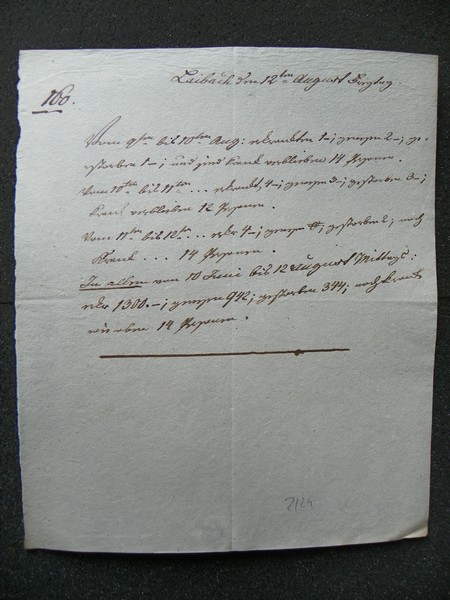 Laibach den 12ten August
160.
Vom 9ten bis 10ten Aug: erkrankten 1-; genesen 2-; ge-
storben 1-; und sind krank verblieben 14 Personen.
Vom 10ten bis 11ten ... erkrankt, 4-; genesen 3-; gestorben 3-;
krank verblieben 12 Personen.
Vom 11ten bis 12ten ... erkr 4-; genesen gestorben noch
Krank ... 14 Personen.
In allem vom 10 Juni bis 12 August Mittags:
erkr 1300.-; genesen 942; gestorben 344; noch krank
wie oben 14 Personen.
2/24